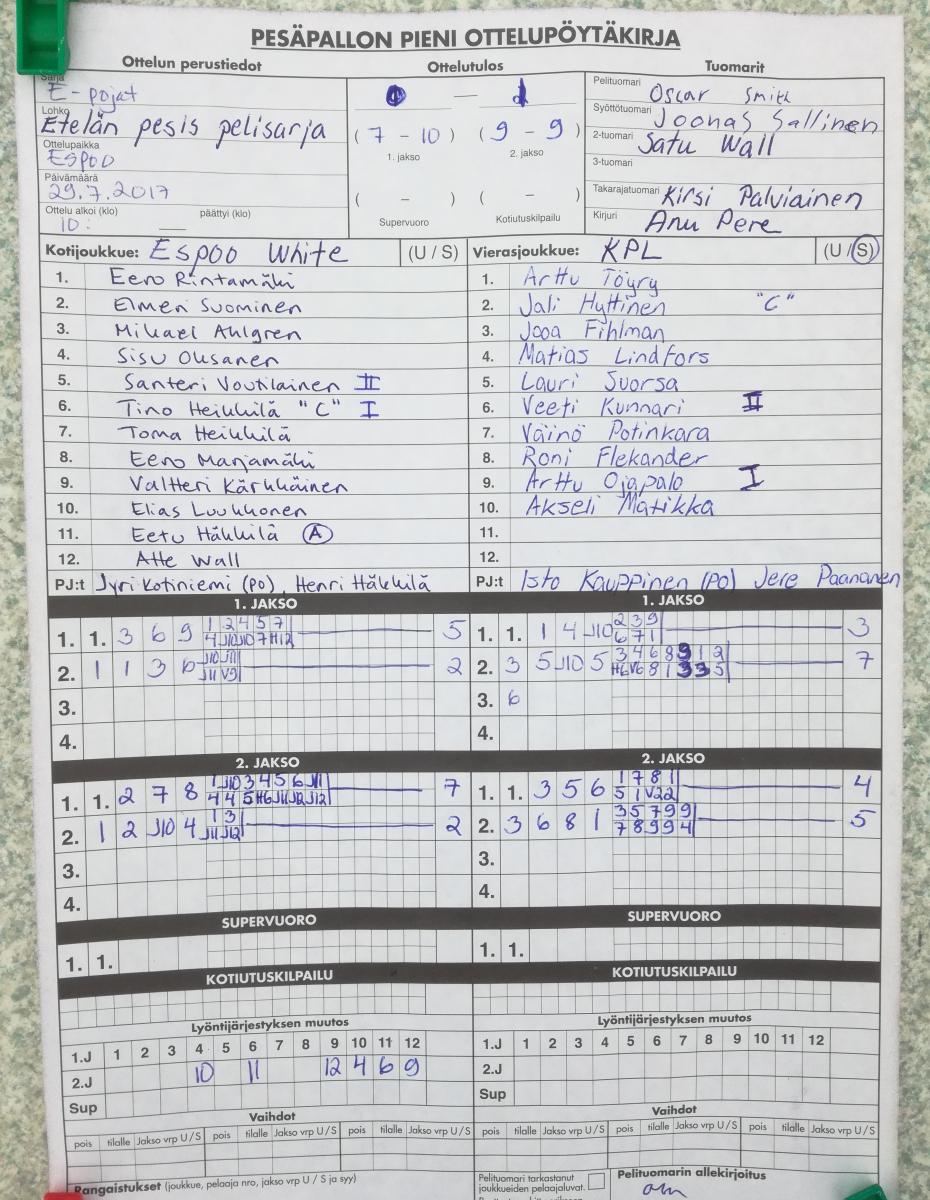 PESÄPALLON PIENI OTTELUPÖYTÄKIRJA
Ottelun perustiedot
Ottelutulos
Tuomarit
Sarja
E-pojat
Lohko
Etelän pesis pelisarja
Ottelupaikka
Espoo
Päivämäärä
29.7.2017
Ottelu alkoi (klo) päättyi (klo)
10:
0 — 1
( 7 - 10 ) ( 9 - 9 )
1. jakso 2. jakso
( - ) ( - )
Supervuoro Kotiutuskilpailu
Pelituomari Oscar Smith
Syöttötuomari Joonas Sallinen
2-tuomari Satu Wall
3-tuomari
Takarajatuomari Kirsi Palviainen
Kirjuri Anu Pere
Kotijoukkue: Espoo White (U / S)
1. Eero Rintamäki
2. Elmeri Suominen
3. Mikael Ahlgren
4. Sisu Oksanen
5. Santeri Voutilainen II
6. Tino Heikkilä "C" I
7. Toma Heikkilä
8. Eero Marjamäki
9. Valtteri Kärkkäinen
10. Elias Luukkonen
11. Eetu Häkkilä A
12. Atte Wall
PJ:t Jyri Kotiniemi (PO), Henri Häkkilä
Vierasjoukkue: KPL (U / S)
1. Arttu Töyry
2. Jali Hyttinen "C"
3. Jooa Fihlman
4. Matias Lindfors
5. Lauri Suorsa
6. Veeti Kunnari II
7. Väinö Potinkara
8. Roni Flekander
9. Arttu Ojapalo I
10. Akseli Matikka
11.
12.
PJ:t Isto Kauppinen (PO) Jere Paananen
1. JAKSO
1. 1. 3 6 9 1 2 4 5 7 5
4 J10 J10 7 H12
2. 1 1 3 6 J10 J11 2
J11 V9
3.
4.
1. JAKSO
1. 1. 1 4 J10 2 3 9 3
6 7 1
2. 3 5 J10 5 3 4 6 8 9 1 2 7
H6 V6 8 1 3 3 5
3. 6
4.
2. JAKSO
1. 1. 2 7 8 1 J10 3 4 5 6 J11 7
4 4 5 H6 J11 J12 J12
2. 1 2 J10 4 1 3 2
J11 J12
3.
4.
2. JAKSO
1. 1. 3 5 6 1 7 8 1 4
5 1 V2 2
2. 3 6 8 1 3 5 7 9 9 5
7 8 9 9 4
3.
4.
SUPERVUORO
1. 1.
SUPERVUORO
1. 1.
KOTIUTUSKILPAILU
KOTIUTUSKILPAILU
Lyöntijärjestyksen muutos
1.J 1 2 3 4 5 6 7 8 9 10 11 12
2.J 10 11 12 4 6 9
Sup
Lyöntijärjestyksen muutos
1.J 1 2 3 4 5 6 7 8 9 10 11 12
2.J
Sup
Vaihdot
pois tilalle Jakso vrp U / S pois tilalle Jakso vrp U / S pois tilalle Jakso vrp U / S
Vaihdot
pois tilalle Jakso vrp U / S pois tilalle Jakso vrp U / S pois tilalle Jakso vrp U / S
Rangaistukset (joukkue, pelaaja nro, jakso vrp U / S ja syy)
Pelituomari tarkastanut
joukkueiden pelaajaluvat.
Pelituomarin allekirjoitus